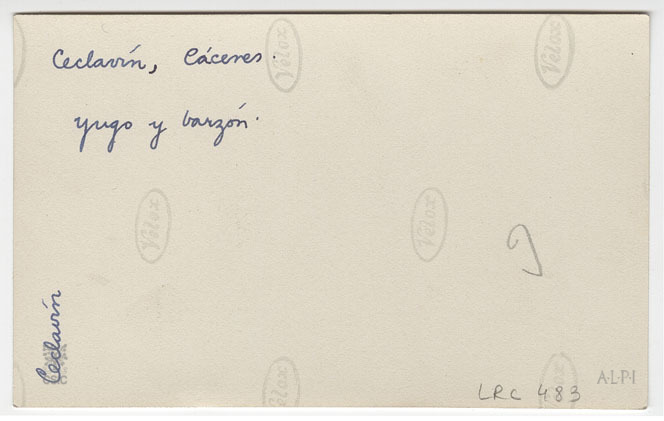 Ceclavín, Cáceres.
yugo y barzón.
Velox
Velox
Velox
Velox
Ceclavín
Velox
Velox
LRC 483
A·L·P·I